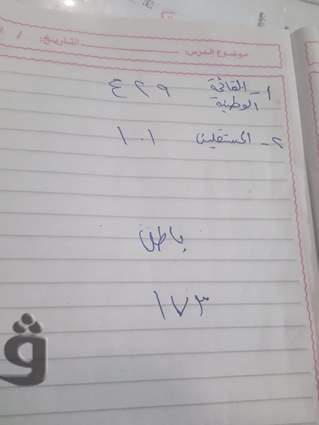 موضوع الدرس: التاريخ: /
١- القائمة ٤٢٩
الوطنية
٢- المستقلين ١٠١
باطل
١٧٣